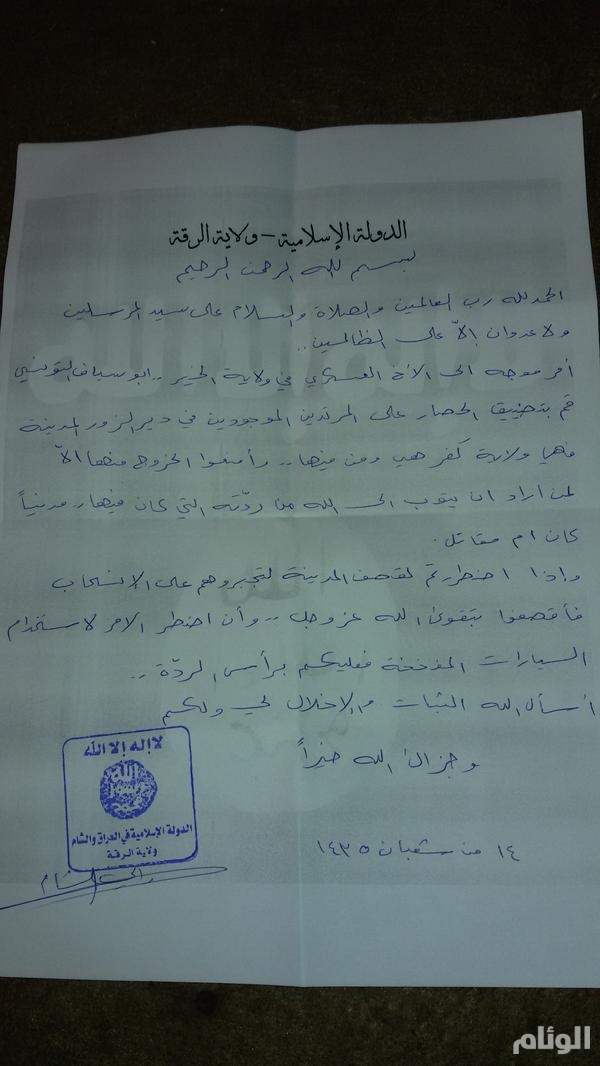 الدولة الإسلامية - ولاية الرقة
بسم الله الرحمن الرحيم
الحمد لله رب العالمين والصلاة والسلام على سيد المرسلين
ولا عدوان الاّ على الظالمين..
أمر موجه الى الأخ العسكري في ولاية الخير .. ابو سياف التونسي
قم بتضييق الحصار على المرتدين الموجودين في دير الزور المدينة
فهي ولاية كفر هي ومن فيها .. وأمنعوا الخروج منها الاّ
لمن اراد ان يتوب الى الله من ردّته التي كان فيها، مدنياً
كان ام مقاتل.
واذا اضطررتم لقصف المدينة لتجبروهم على الإنسحاب
فأقصفوا بتقوى الله عز وجل .. وأن اضطر الامر لاستخدام
السيارات المفخخة فعليكم برأس الردّة ..
أسأل الله الثبات والإخلال لي ولكم
وجزاك الله خيراً
١٤ من شعبان ١٤٣٥
لا إله إلا الله
الله
الدولة الإسلامية في العراق والشام
ولاية الرقة
الوئام